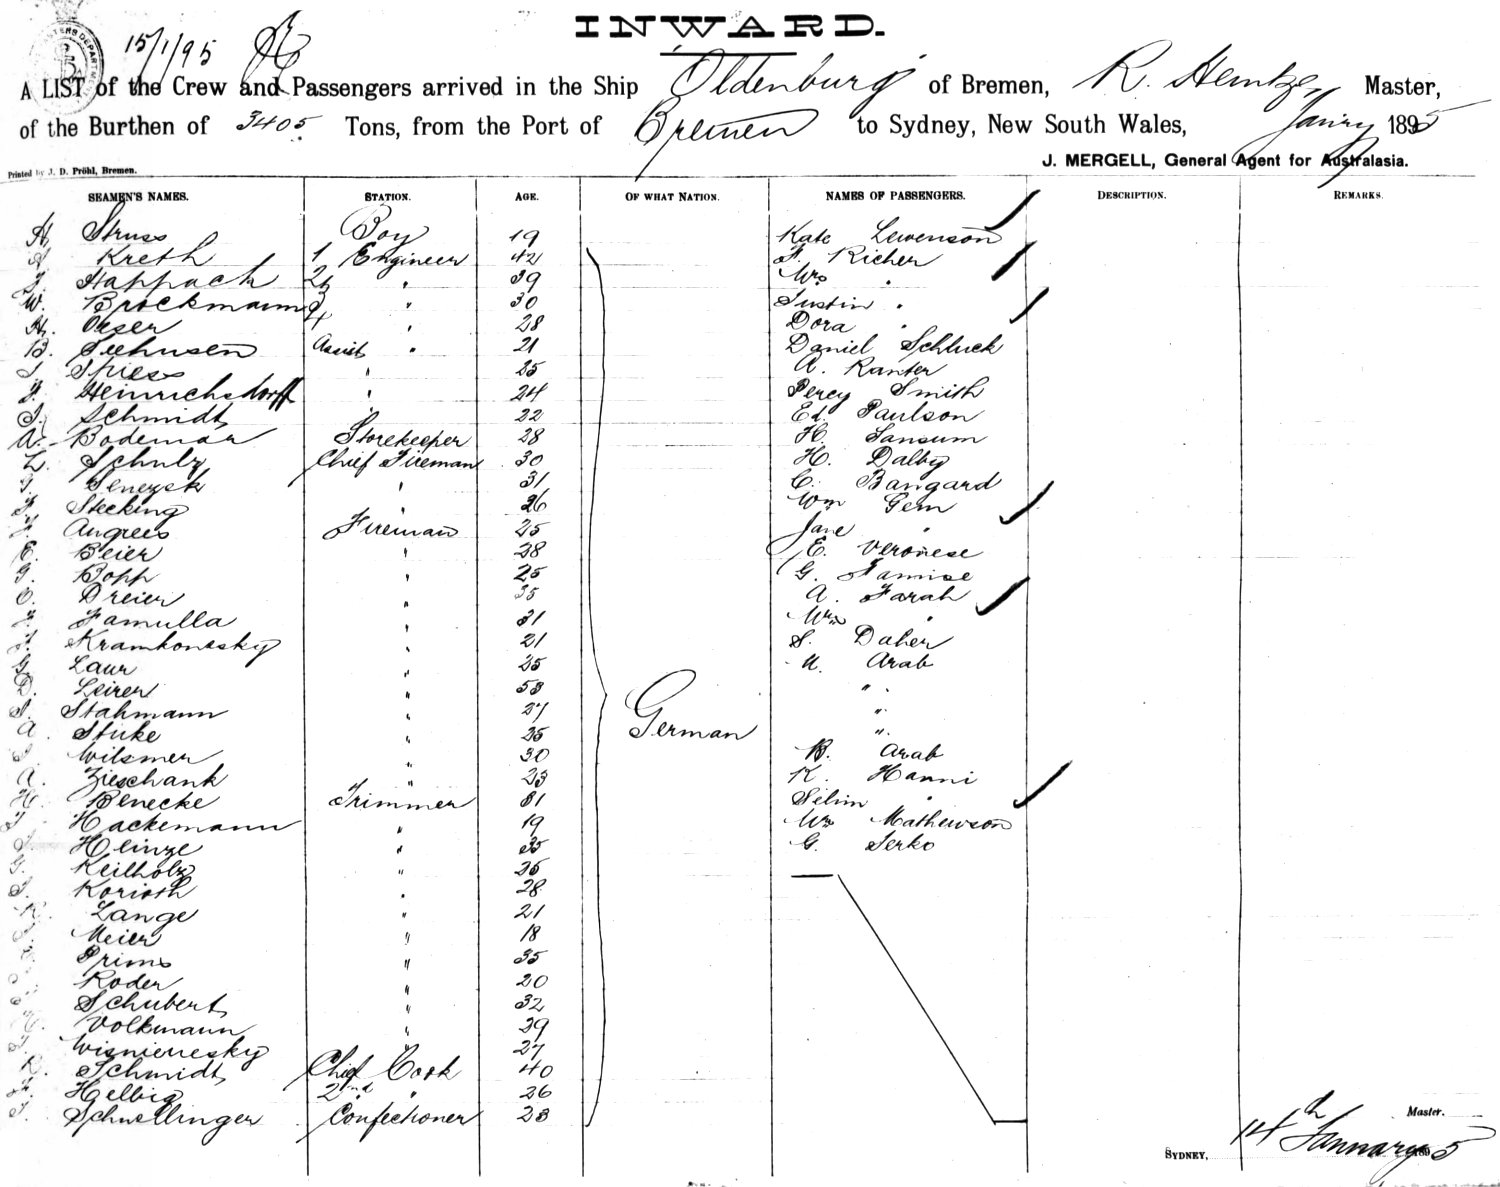 INWARD.
15/1/95
A LIST of the Crew and Passengers arrived in the Ship Oldenburg of Bremen, R. Heintze, Master,
of the Burthen of 3405 Tons, from the Port of Bremen to Sydney, New South Wales, Janry 1895
J. MERGELL, General Agent for Australasia.
Printed by J. D. Pröhl, Bremen.
SEAMEN'S NAMES. STATION. AGE. OF WHAT NATION. NAMES OF PASSENGERS. DESCRIPTION. REMARKS.
H. Struss Boy 19 Kate Lewenson
A Kreth 1 Engineer 42 F. Richer
Happach 2 " 39 Mrs "
W. Brockmann 3 " 30 Justin "
H. Oeser 4 " 28 Dora "
B. Seehusen Assist " 21 Daniel Schluck
Spiess " 25 A. Kanter
Heinrichsdorff " 24 Percy Smith
Schmidt 22 Ed. Paulson
A. Bodemar Storekeeper 28 H. Sansum
L. Schulz Chief Fireman 30 H. Dalby
" 31 C. Bangard
Stecking " 26 Wm Gem
Angrees Fireman 25 Jane "
E. Beier " 28 E. Veronese
G. Bopp " 25 G.
O. Dreier " 35 A. Farah
Famulla " 31 Mrs "
Kramkowsky " 21 S. Daher
G. Laur " 25 A. Arab
D. Leirer " 53 "
Stahmann " 27 "
A. Stuke " 25 German "
Wilsmer " 30 B. Arab
A. Zieschank " 23 K. Hanni
H. Benecke Trimmer 31 Selim "
Hackemann " 19 Wm Mathewson
Heinze " 35 G. Serko
G. Keilholz " 25
Korioth " 28
Lange " 21
Meier " 18
Prims " 35
Roder " 20
Schubert " 32
Volkmann " 39
Wisniewesky 27
Schmidt Chief Cook 40
Helbig 2nd " 26
Schwellinger Confectioner 23
Master.
SYDNEY, 14th January 1895